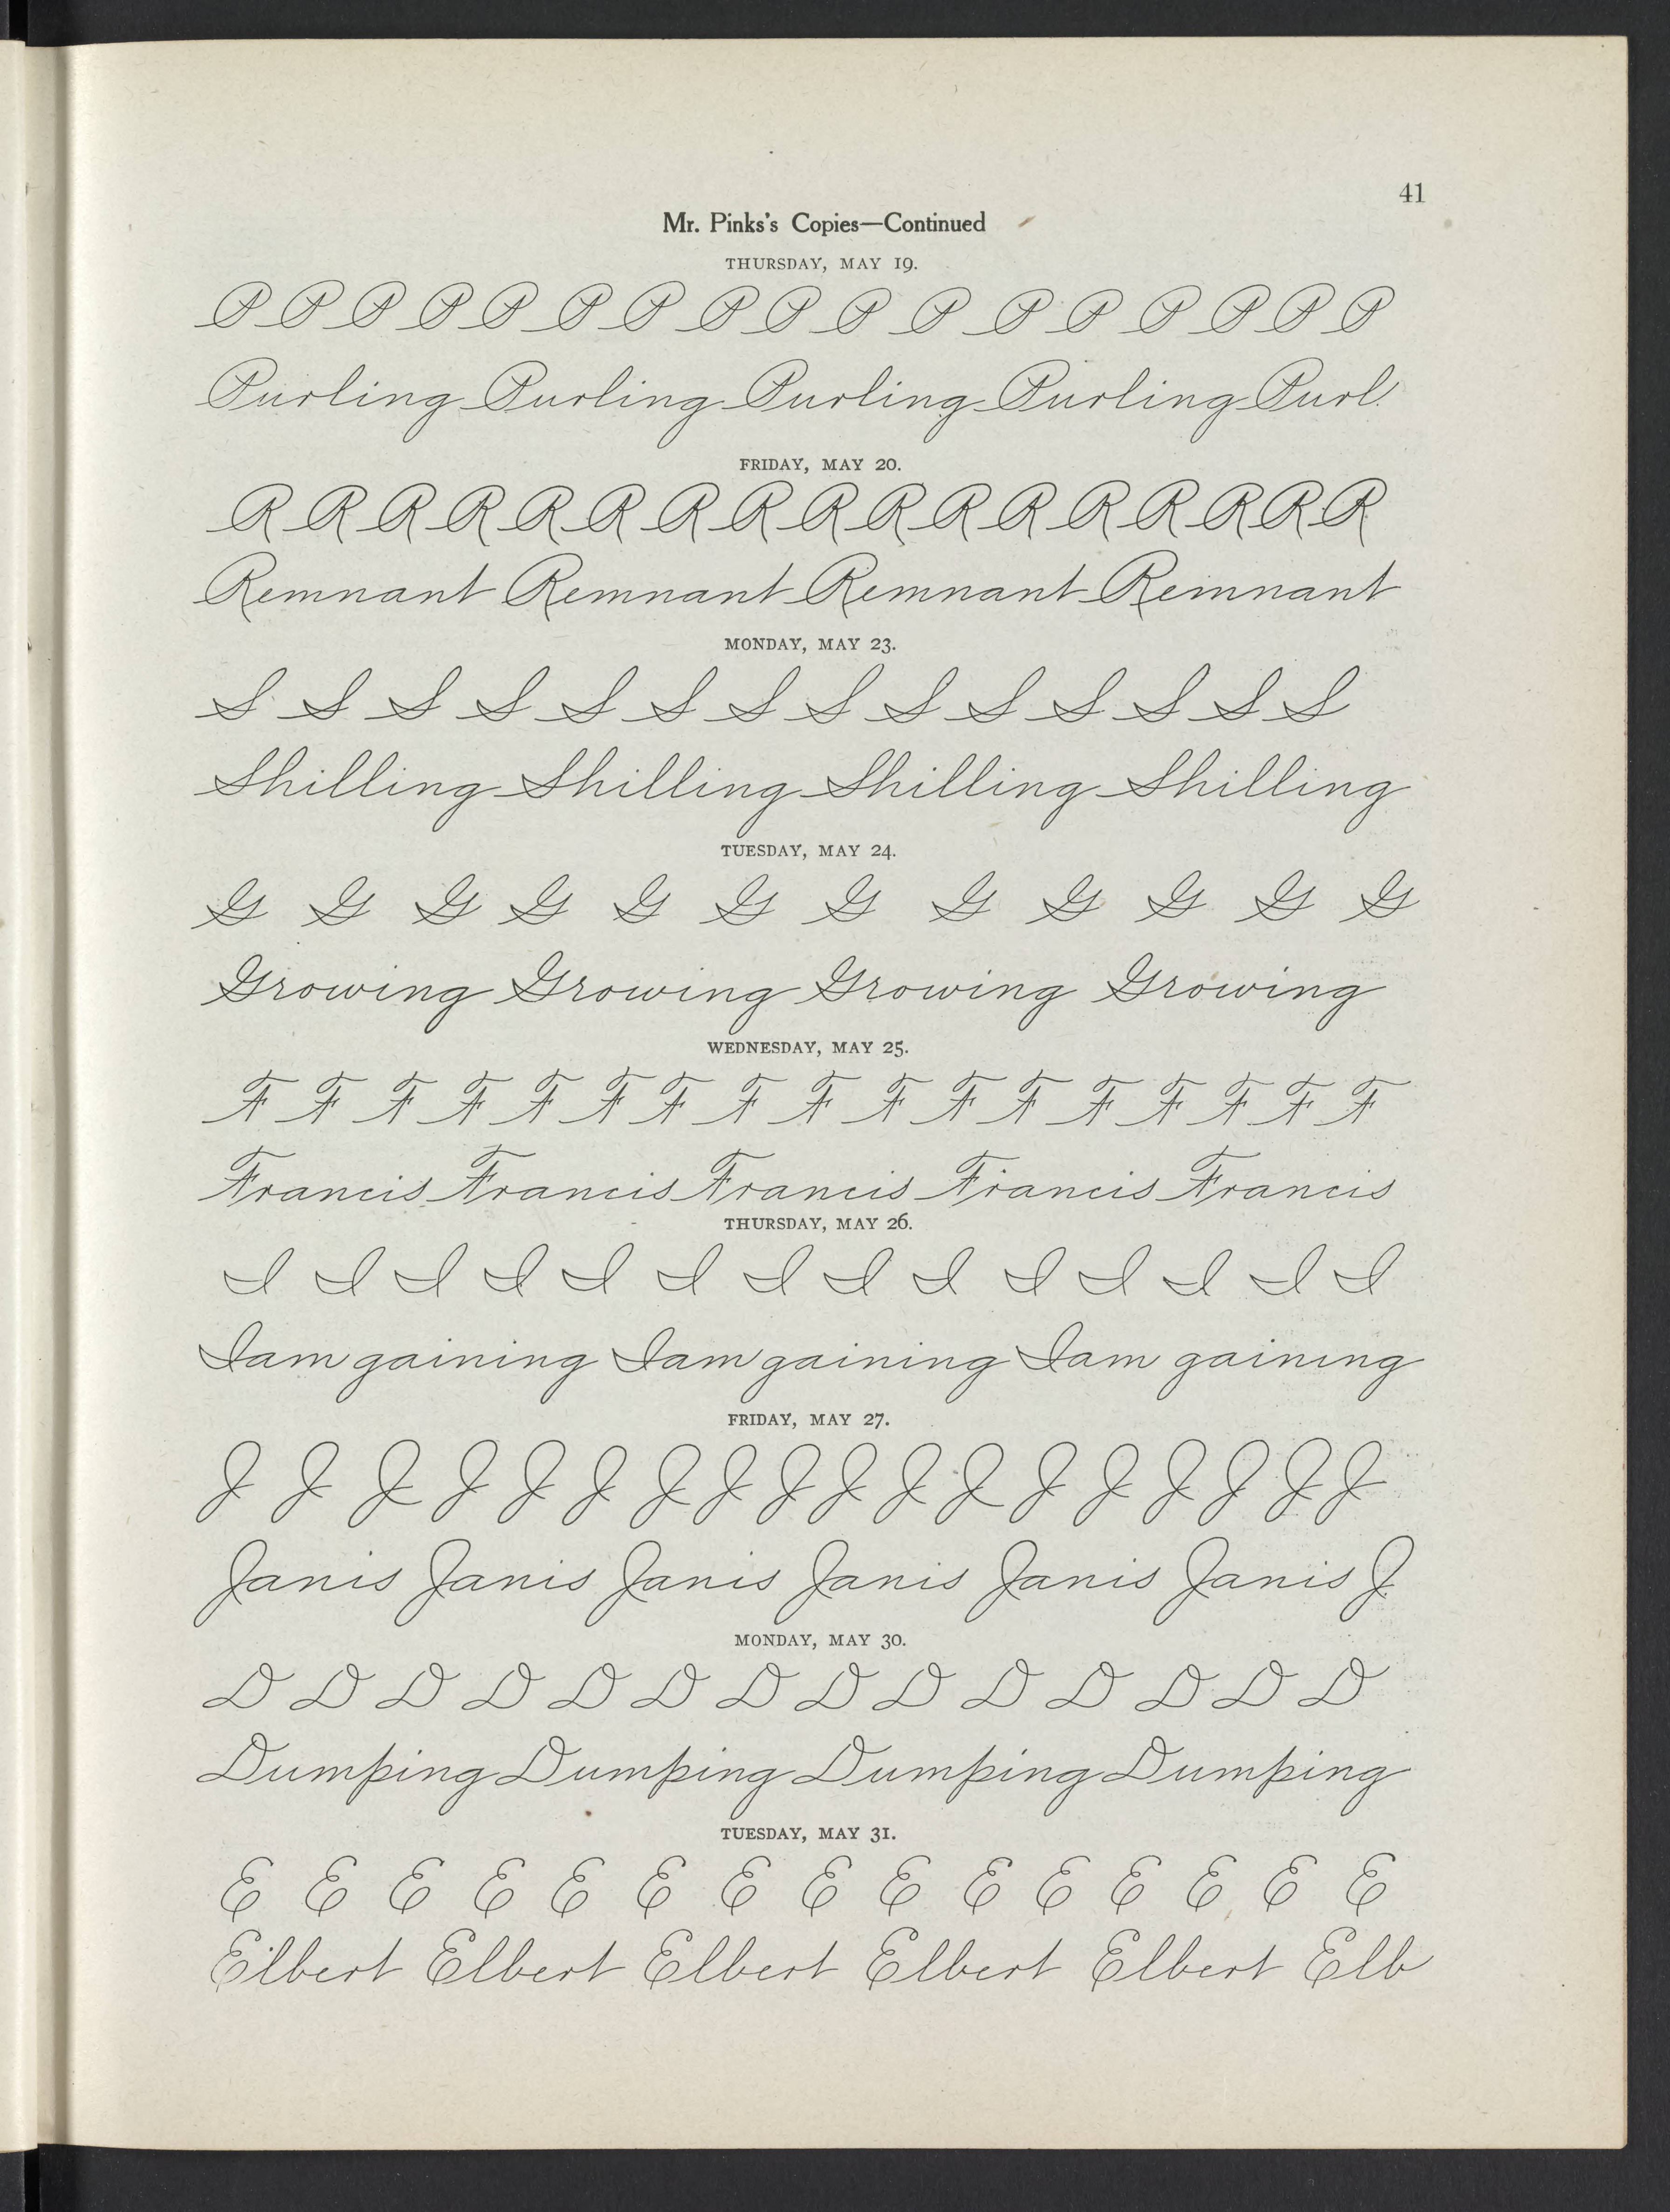 41
Mr. Pinks's Copies—Continued
THURSDAY, MAY 19.
P P P P P P P P P P P P P P P P P
Purling Purling Purling Purling Purl
FRIDAY, MAY 20.
R R R R R R R R R R R R R R R R R
Remnant Remnant Remnant Remnant
MONDAY, MAY 23.
S S S S S S S S S S S S S S
Shilling Shilling Shilling Shilling
TUESDAY, MAY 24.
G G G G G G G G G G G G
Growing Growing Growing Growing
WEDNESDAY, MAY 25.
F F F F F F F F F F F F F F F F F
Francis Francis Francis Francis Francis
THURSDAY, MAY 26.
I I I I I I I I I I I I I I
I am gaining I am gaining I am gaining
FRIDAY, MAY 27.
J J J J J J J J J J J J J J J J J J
Janis Janis Janis Janis Janis Janis J
MONDAY, MAY 30.
D D D D D D D D D D D D D D
Dumping Dumping Dumping Dumping
TUESDAY, MAY 31.
E E E E E E E E E E E E E E E
Elbert Elbert Elbert Elbert Elbert Elb